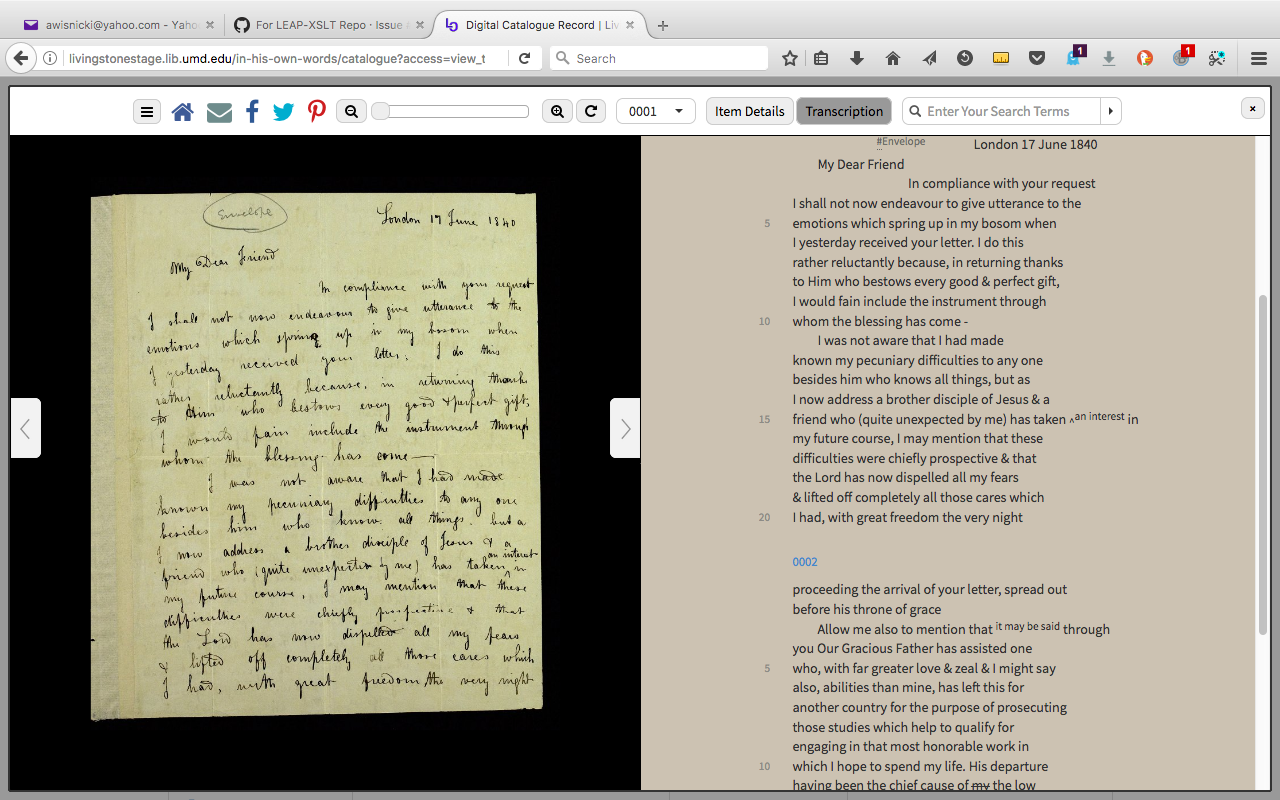 awisnicki@yahoo.com - Yaho
For LEAP-XSLT Repo · Issue
Digital Catalogue Record | Liv
livingstonestage.lib.umd.edu/in-his-own-words/catalogue?access=view_t
Search
1
1
0001
Item Details
Transcription
Enter Your Search Terms
Envelope
London 17 June 1840
My Dear Friend
In compliance with your request
I shall not now endeavour to give utterance to the
emotions which spring up in my bosom when
I yesterday received your letter. I do this
rather reluctantly because, in returning thanks
to Him who bestows every good & perfect gift,
I would fain include the instrument through
whom the blessing has come —
I was not aware that I had made
known my pecuniary difficulties to any one
besides him who knows all things, but as
I now address a brother disciple of Jesus & a
an interest
friend who (quite unexpected by me) has taken ^ in
my future course, I may mention that these
difficulties were chiefly prospective & that
the Lord has now dispelled all my fears
& lifted off completely all those cares which
I had, with great freedom the very night
#Envelope
London 17 June 1840
My Dear Friend
In compliance with your request
I shall not now endeavour to give utterance to the
5 emotions which spring up in my bosom when
I yesterday received your letter. I do this
rather reluctantly because, in returning thanks
to Him who bestows every good & perfect gift,
I would fain include the instrument through
10 whom the blessing has come -
I was not aware that I had made
known my pecuniary difficulties to any one
besides him who knows all things, but as
I now address a brother disciple of Jesus & a
15 friend who (quite unexpected by me) has taken ^an interest in
my future course, I may mention that these
difficulties were chiefly prospective & that
the Lord has now dispelled all my fears
& lifted off completely all those cares which
20 I had, with great freedom the very night
0002
proceeding the arrival of your letter, spread out
before his throne of grace
Allow me also to mention that it may be said through
you Our Gracious Father has assisted one
5 who, with far greater love & zeal & I might say
also, abilities than mine, has left this for
another country for the purpose of prosecuting
those studies which help to qualify for
engaging in that most honorable work in
10 which I hope to spend my life. His departure
having been the chief cause of my the low